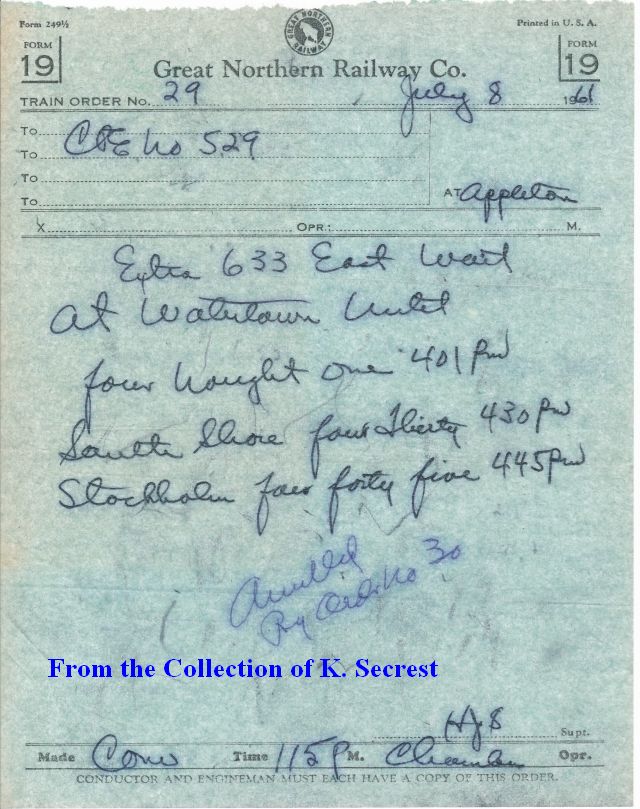 Form 249½
Printed in U. S. A.
GREAT NORTHERN RAILWAY
FORM 19
FORM 19
Great Northern Railway Co.
TRAIN ORDER No. 29 July 8 1961
To C&E No 529
To
To
To AT Appleton
X OPR: M.
Extra 633 East Wait
at Watertown Until
four nought one 401 PM
South Shore four thirty 430 PM
Stockholm four forty five 445 PM
Annulled
By Order No 30
From the Collection of K. Secrest
HJS Supt.
Made Com Time 115 P M. Opr.
CONDUCTOR AND ENGINEMAN MUST EACH HAVE A COPY OF THIS ORDER.